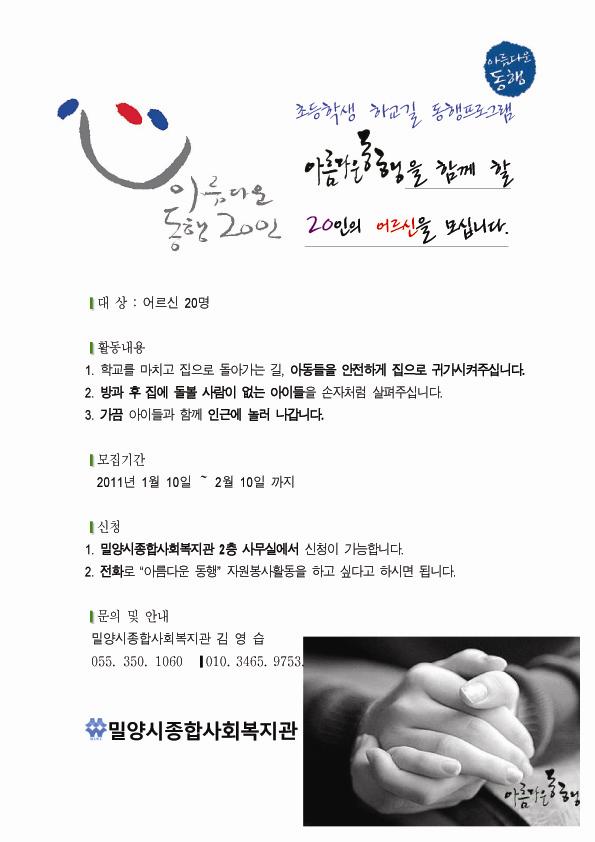 아름다운
동행
초등학생 하교길 동행프로그램
아름다운동행을 함께 할
20인의 어르신을 모십니다.
아름다운
동행 20인
대 상 : 어르신 20명
활동내용
1. 학교를 마치고 집으로 돌아가는 길, 아동들을 안전하게 집으로 귀가시켜주십니다.
2. 방과 후 집에 돌볼 사람이 없는 아이들을 손자처럼 살펴주십니다.
3. 가끔 아이들과 함께 인근에 놀러 나갑니다.
모집기간
2011년 1월 10일 ~ 2월 10일 까지
신청
1. 밀양시종합사회복지관 2층 사무실에서 신청이 가능합니다.
2. 전화로 “아름다운 동행” 자원봉사활동을 하고 싶다고 하시면 됩니다.
문의 및 안내
밀양시종합사회복지관 김 영 습
055. 350. 1060 ▎010. 3465. 9753.
밀양시종합사회복지관
아름다운동행